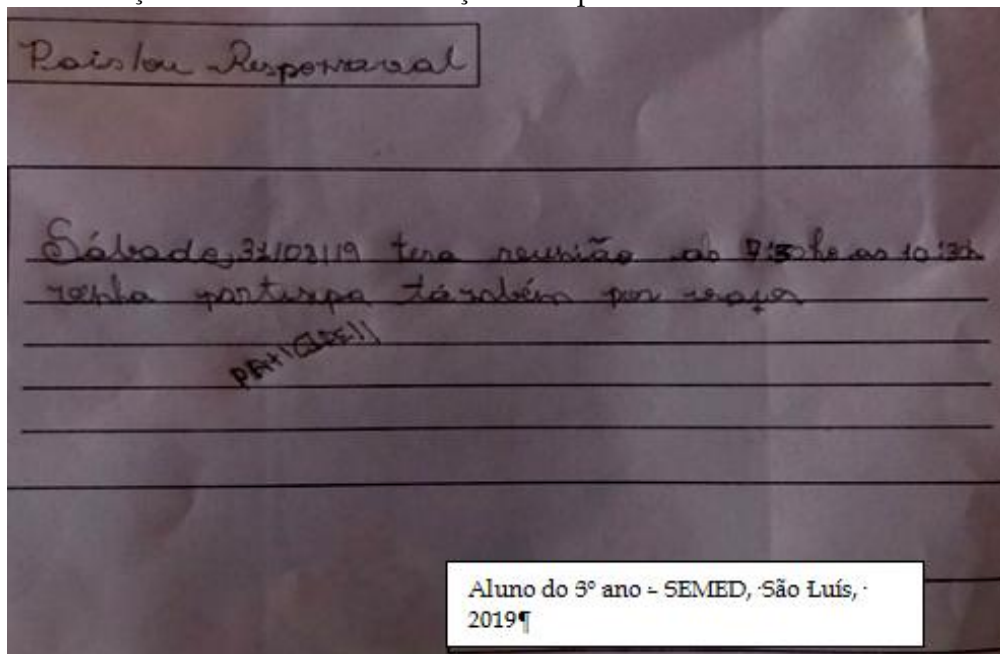 Pais/ou Responsaval
Sábado, 31/08/19 tera reunião as 7:30 hs as 10:30h
venha partisipa também por
PARTICIPE!!
Aluno do 3º ano – SEMED, São Luís,
2019¶